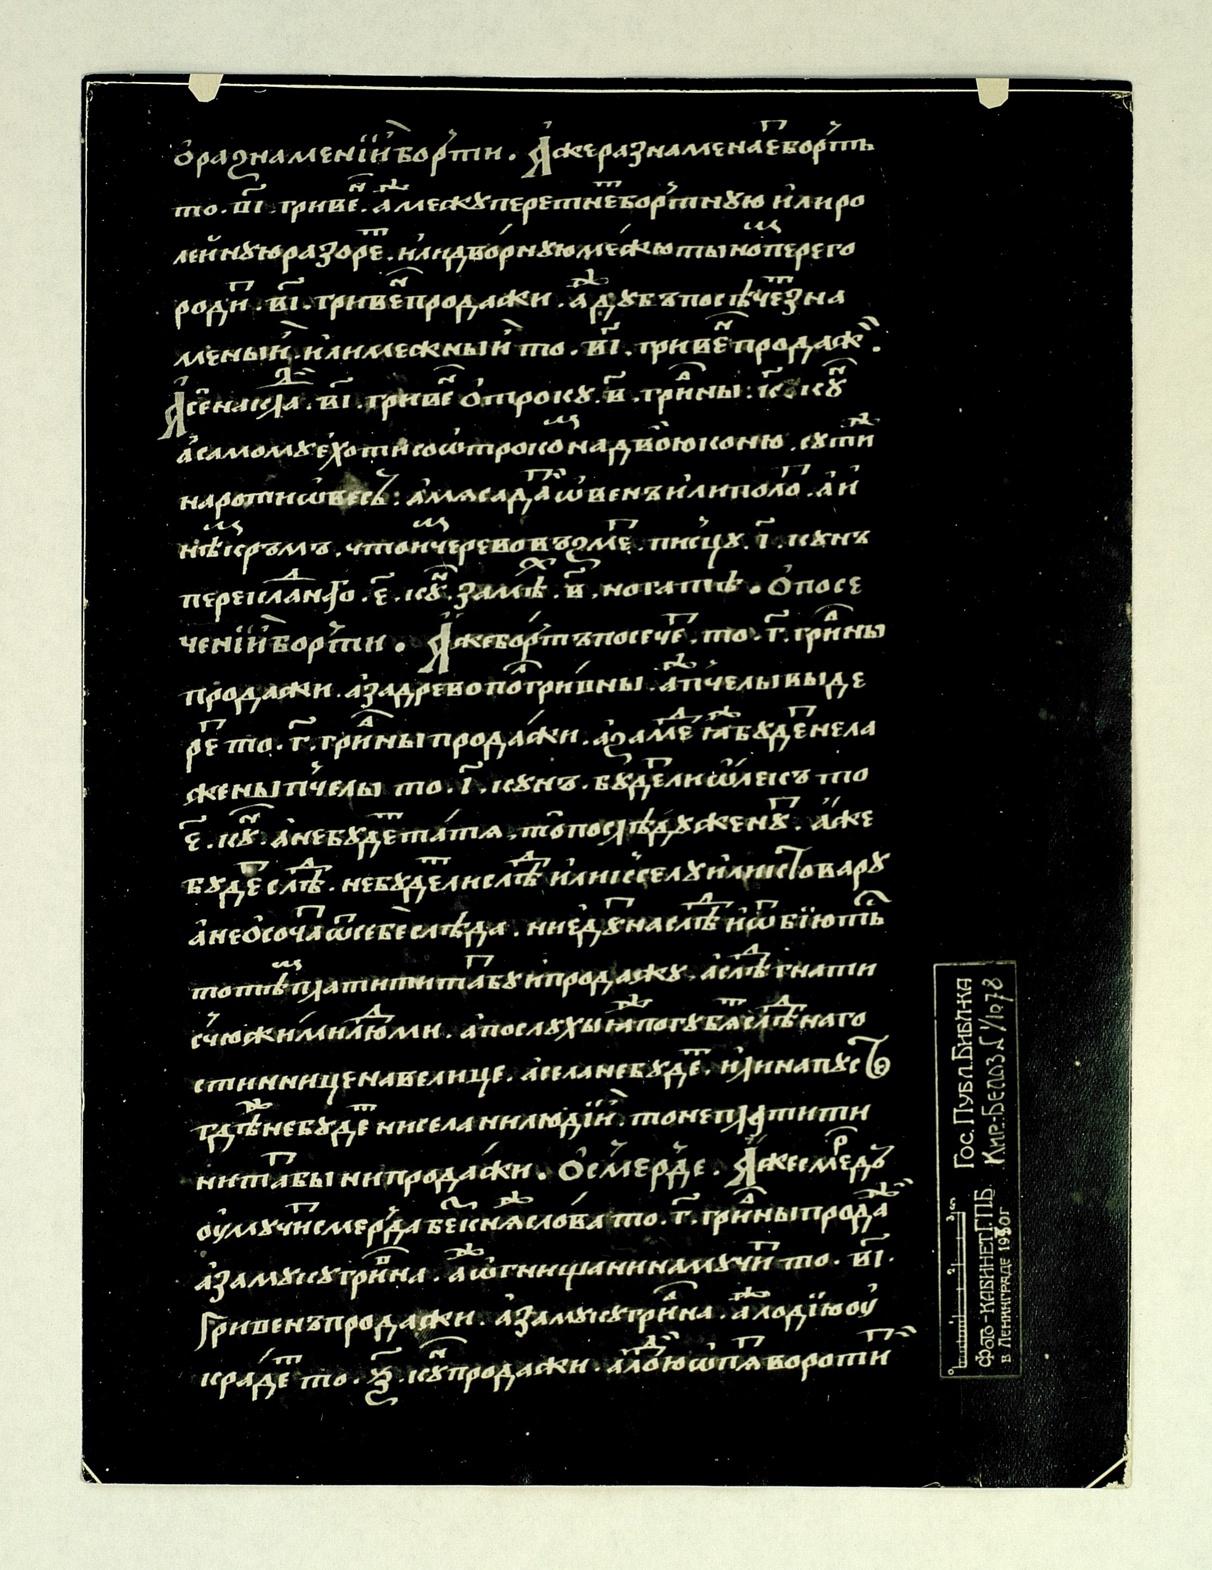 ѡ разнаменіи борти. Аже разнаменаетⷭ борть
то. в҃і. гривеⷩ. аⷤ межу перетнеⷮ бортную или ро
лейную разореⷮ. или дворную межю тыноⷨ перего
родиⷮ. в҃і. гривеⷩ продажи. аⷤ дубъ посѣчеⷮ зна
меный. или межный то. в҃і. гривеⷩ продажⷤ.
А се наклаⷣ. в҃і. гривеⷩ отроку. в҃. гриⷡны. к҃. куⷩ
а самому ехоти со ѡтрокоⷨ на двою коню. сутиⷤ
на роти ѡвесъ. а мяса даⷮ ѡвенъ или полоⷮ. а и
нѣⷨ кръмъ. что има черево возмеⷮ. писцу. і҃. кунъ
перекладнаго. е҃. куⷩ. за мѣⷯ. в҃. ногатѣ. О посе
ченіи борти. Аже борть посечеⷮ. то. г҃. гриⷡны
продажи. а за древо поⷧгривны. аⷤ пчелы выде
реⷮ то. г҃. гриⷡны продажи. а за меⷣ аⷤ будеⷮ нела
жены пчелы то. і҃. кунъ. будеⷮ ли ѡлекъ то
е҃. куⷩ. а не будеⷮ татя, то по слѣду женуⷮ. аже
будеⷮ слѣⷣ. не будеⷮ ли слѣⷣ или к селу или к товару
а не ѡсочаⷮ ѡⷮ себе слѣда. ни едуⷮ на слѣⷣ и ѿбіютьⷭ
то тѣⷨ платити татбу и продажу. а слѣⷣ гнати
с чюжими люⷣми. а послухы аⷤ погубяⷮ слѣⷣ на го
стинници на велице. а села не будеⷮ. или на пустѣ
гдѣⷤ не будеⷮ ни села ни людіи. то не платити
ни татбы ни продажи. О смерде. Аже смеⷬдъ
оумучиⷮ смерда беⷥ княⷤ слова то. г҃. гриⷡны продаⷤ
а за муку гриⷡна. аⷤ ѡгнищанина мучиⷮ то. в҃і.
гривенъ продажи. а за муку гриⷡна. аⷤ лодію оу
крадеⷮ то. ѯ҃. куⷩ продажи. а лоⷣю ѡпяⷮ воротиⷮ
Гос. Публ. Библ-ка
Кир.-Белоз. №/1078
Фото-кабинет Г.П.Б.
в Ленинграде 1930г